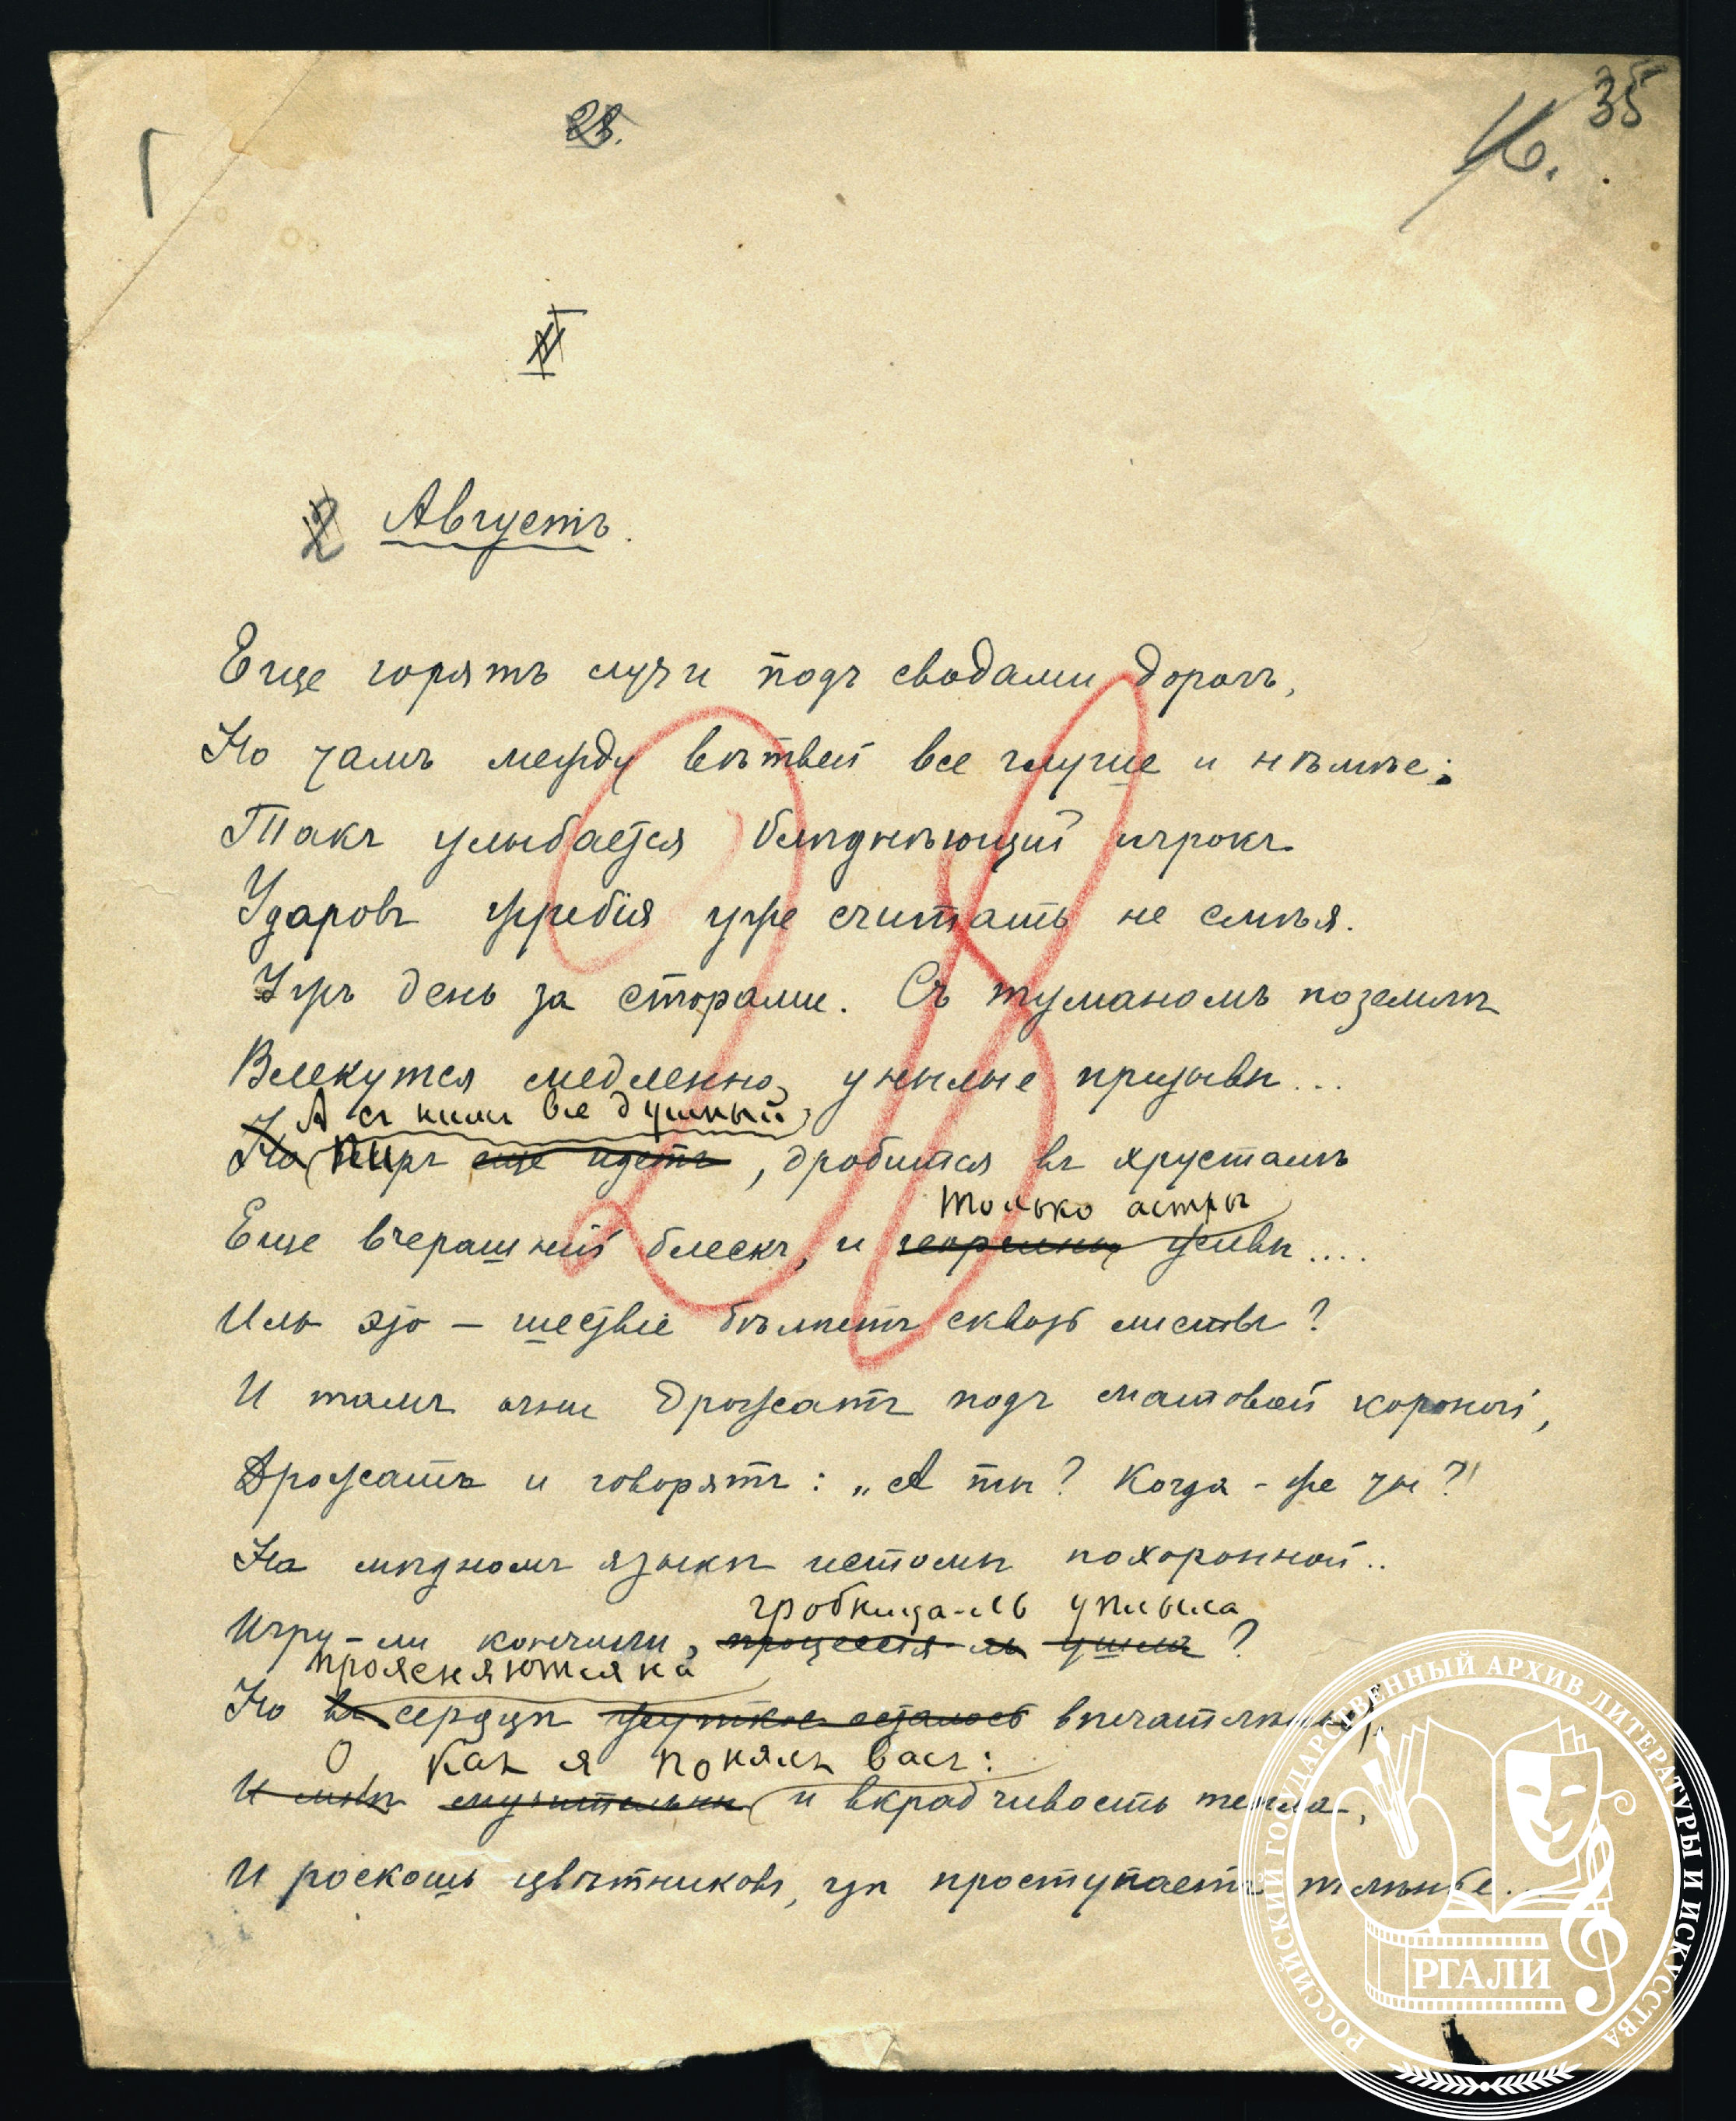 28.
35
16.
II
2 Августъ.
Еще горятъ лучи подъ сводами дорогъ,
Но тамъ между вѣтвей все глуше и нѣмѣе:
Такъ улыбается блѣднѣющій игрокъ
Ударовъ жребія уже считать не смѣя.
Ужъ день за сторами. Съ туманомъ по землѣ
Влекутся медленно унылые призывы...
А съ нимъ все душный
Но пиръ еще идетъ, дробится въ хрусталѣ
только астры
Еще вчерашній блескъ, и георгины живы....
Иль это – шествіе бѣлѣетъ сквозь листы?
И тамъ огни дрожатъ подъ матовой короной,
Дрожатъ и говорятъ: „А ты? Когда-же ты?"
На мѣдномъ языкѣ истомы похоронной..
гробница-ль уплыла
Игру-ли кончили, процессія-ль ушла?
проясняются на
Но въ сердцѣ жуткое осталось впечатлѣнья;
О какъ я понялъ васъ:
И мнѣ мучительны и вкрадчивость тепла,
И роскошь цвѣтниковъ, гдѣ проступаетъ тлѣнье...
28
РОССИЙСКИЙ ГОСУДАРСТВЕННЫЙ АРХИВ ЛИТЕРАТУРЫ И ИСКУССТВА
РГАЛИ